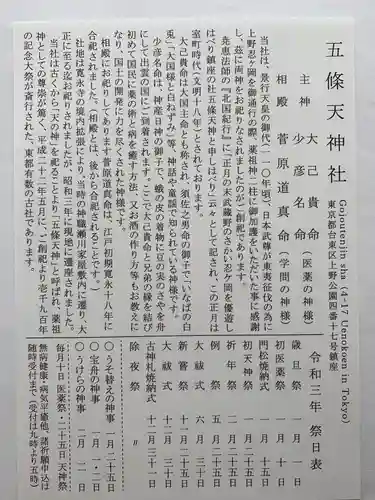 五條天神社
東京都台東区上野公園四番十七号鎮座
Gojoutenjin sha (4-17 Uenokoen in Tokyo)
主神 大己貴命
少彦名命 (医薬の神様)
相殿 菅原道真命 (学問の神様)
当社は、景行天皇の御代(一一〇年頃)、日本武尊が東夷征伐の為に
上野忍ヶ岡を御通行の際、薬祖神二柱に御加護をいただいた事に感謝
し、茲に両神をお祀りなされましたのがご創祀であります。
尭恵法師の『北国紀行』に「正月の末武蔵野のさかい忍ヶ岡を優遊し
はべり鎮座の社五條天神と申しはべり云々」として記され、この正月は
室町時代(文明十八年)とされております。
大己貴命は大国主命とも称され、須佐之男命の御子で「いなばの白
兎」「大国様と白ねずみ」等、神話や童謡で知られている神様です。
少彦名命は、神産日神の御子で、蛾の皮の着物に豆の莢のさやを舟
にして出雲の国にご到着されます。ここで大己貴命と兄弟の縁を結び
初めて国民に薬の術と病を癒す方法、又お酒の作り方等もお教えに
なり、国土の開発に力を尽くされた神様です。
相殿にお祀りしてあります菅原道真命は、江戸初期寛永十八年に
合祀されました。(相殿とは、後から合祀されることです。)
社地は寛永寺の境内拡張により、当時の神職瀬川家屋敷内に遷り、大
正に至る迄お祀りされましたが、昭和三年に現地に遷座されました。
当社は古くから「天の神」を祀ることより「五條天神」と呼ばれ、医薬祖
神としての尊崇が篤く、平成二十二年五月に、ご創祀より壱千九百年
の記念大祭が斎行された、東都有数の古社であります。
令和三年 祭日表
歳旦祭 一月一日
初医薬祭 一月十日
門松焼納式 一月十五日
初天神祭 一月二十五日
祈年祭 二月二十五日
例祭 五月二十五日
大祓式 六月三十日
新嘗祭 十一月二十五日
大祓式 十二月二十日
古神札焼納式 十二月三十一日
除夜祭 〃
〇うそ替えの神事 一月二十五日
〇宝舟の神事 一月一・二日
〇うけらの神事 二月二日
毎月十日 医薬祭・二十五日 天神祭
無病健康・病気平癒他、諸祈願申込は
随時受付まで(受付は九時より五時)